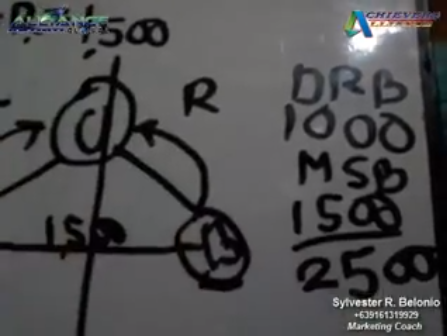 ALLIANCE
ACHIEVERS
ALLIANCE
1,500
R
DRB
1000
MSB
1500
2500
C
1,500
B
Sylvester R. Belonio
+639161319929
Marketing Coach